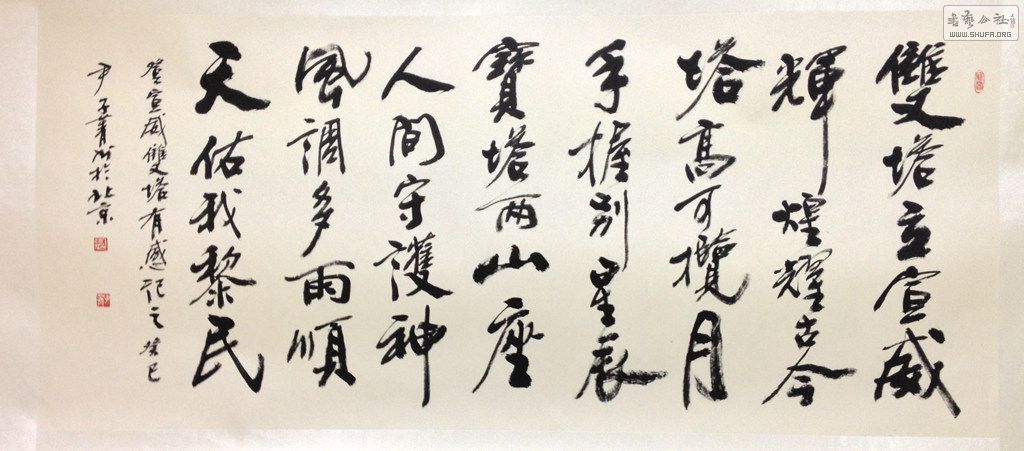 雙塔立宣威
輝煌耀古今
塔高可攬月
手握別星辰
寶塔两山座
人間守護神
風調多雨順
天佑我黎民
登宣威雙塔有感記之癸巳
尹子青於北京
書藝公社
WWW.SHUFA.ORG